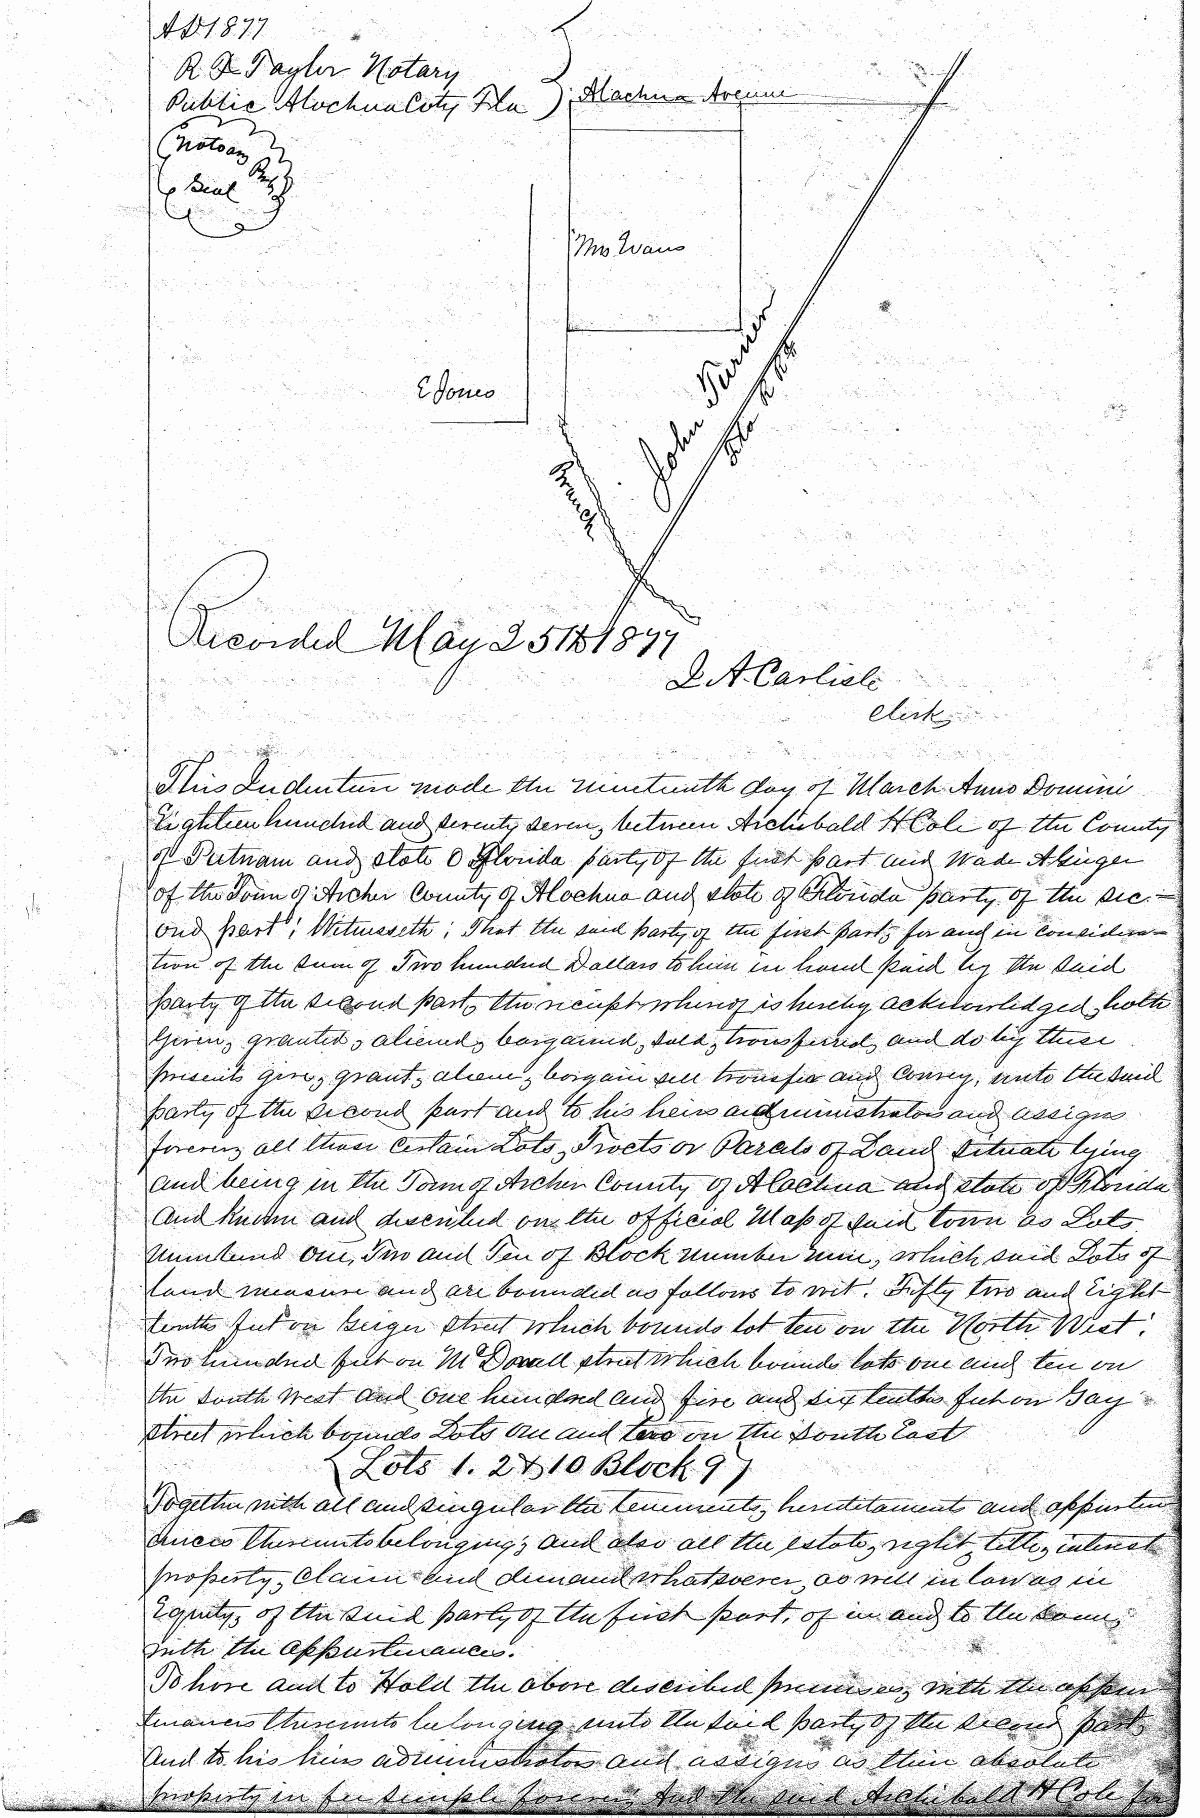 AD 1877
R F Taylor Notary
Public Alachua Coty Fla
Notary
Seal
Alachua Avenue
Mrs Evans
E Jones
John Turner
Fla R R
Branch
Recorded May 25th 1877
J. A. Carlisle
Clerk
This Indenture made the nineteenth day of March Anno Domini
Eighteen hundred and seventy seven, between Archibald H Cole of the County
of Putnam and state O Florida party of the first part and Wade A Geiger
of the Town of Archer County of Alachua and state of Florida party of the sec=
ond part; Witnesseth; That the said party of the first part, for and in considera=
tion of the sum of Two hundred Dollars to him in hand paid by the said
party of the second part, the receipt whereof is hereby acknowledged, hath
given, granted, aliened, bargained, sold, transferred, and do by these
presents give, grant, aliene, bargain sell transfer and convey, unto the said
party of the second part and to his heirs administrators and assigns
forever, all those certain Lots, Tracts or Parcels of Land situate lying
and being in the Town of Archer County of Alachua and state of Florida
and known and described on the official Map of said town as Lots
numbered One, Two and Ten of Block number nine, which said Lots of
land measure and are bounded as follows to wit: Fifty two and Eight
tenths feet on Geiger street which bounds lot ten on the North West;
Two hundred feet on McDowall street which bounds lots one and ten on
the South West and One hundred and five and six tenths feet on Gay
street which bounds Lots one and two on the South East
(Lots 1. 2 & 10 Block 9)
Together with all and singular the tenements, hereditaments and appurten
ances thereunto belonging; and also all the estate, right, title, interest
property, claim and demand whatsoever, as well in law as in
Equity, of the said party of the first part, of in and to the same,
with the appurtenances.
To have and to Hold the above described premises, with the appur
tenances thereunto belonging unto the said party of the second part,
and to his heirs administrators and assigns as their absolute
property in fee simple forever; And the said Archibald H Cole for